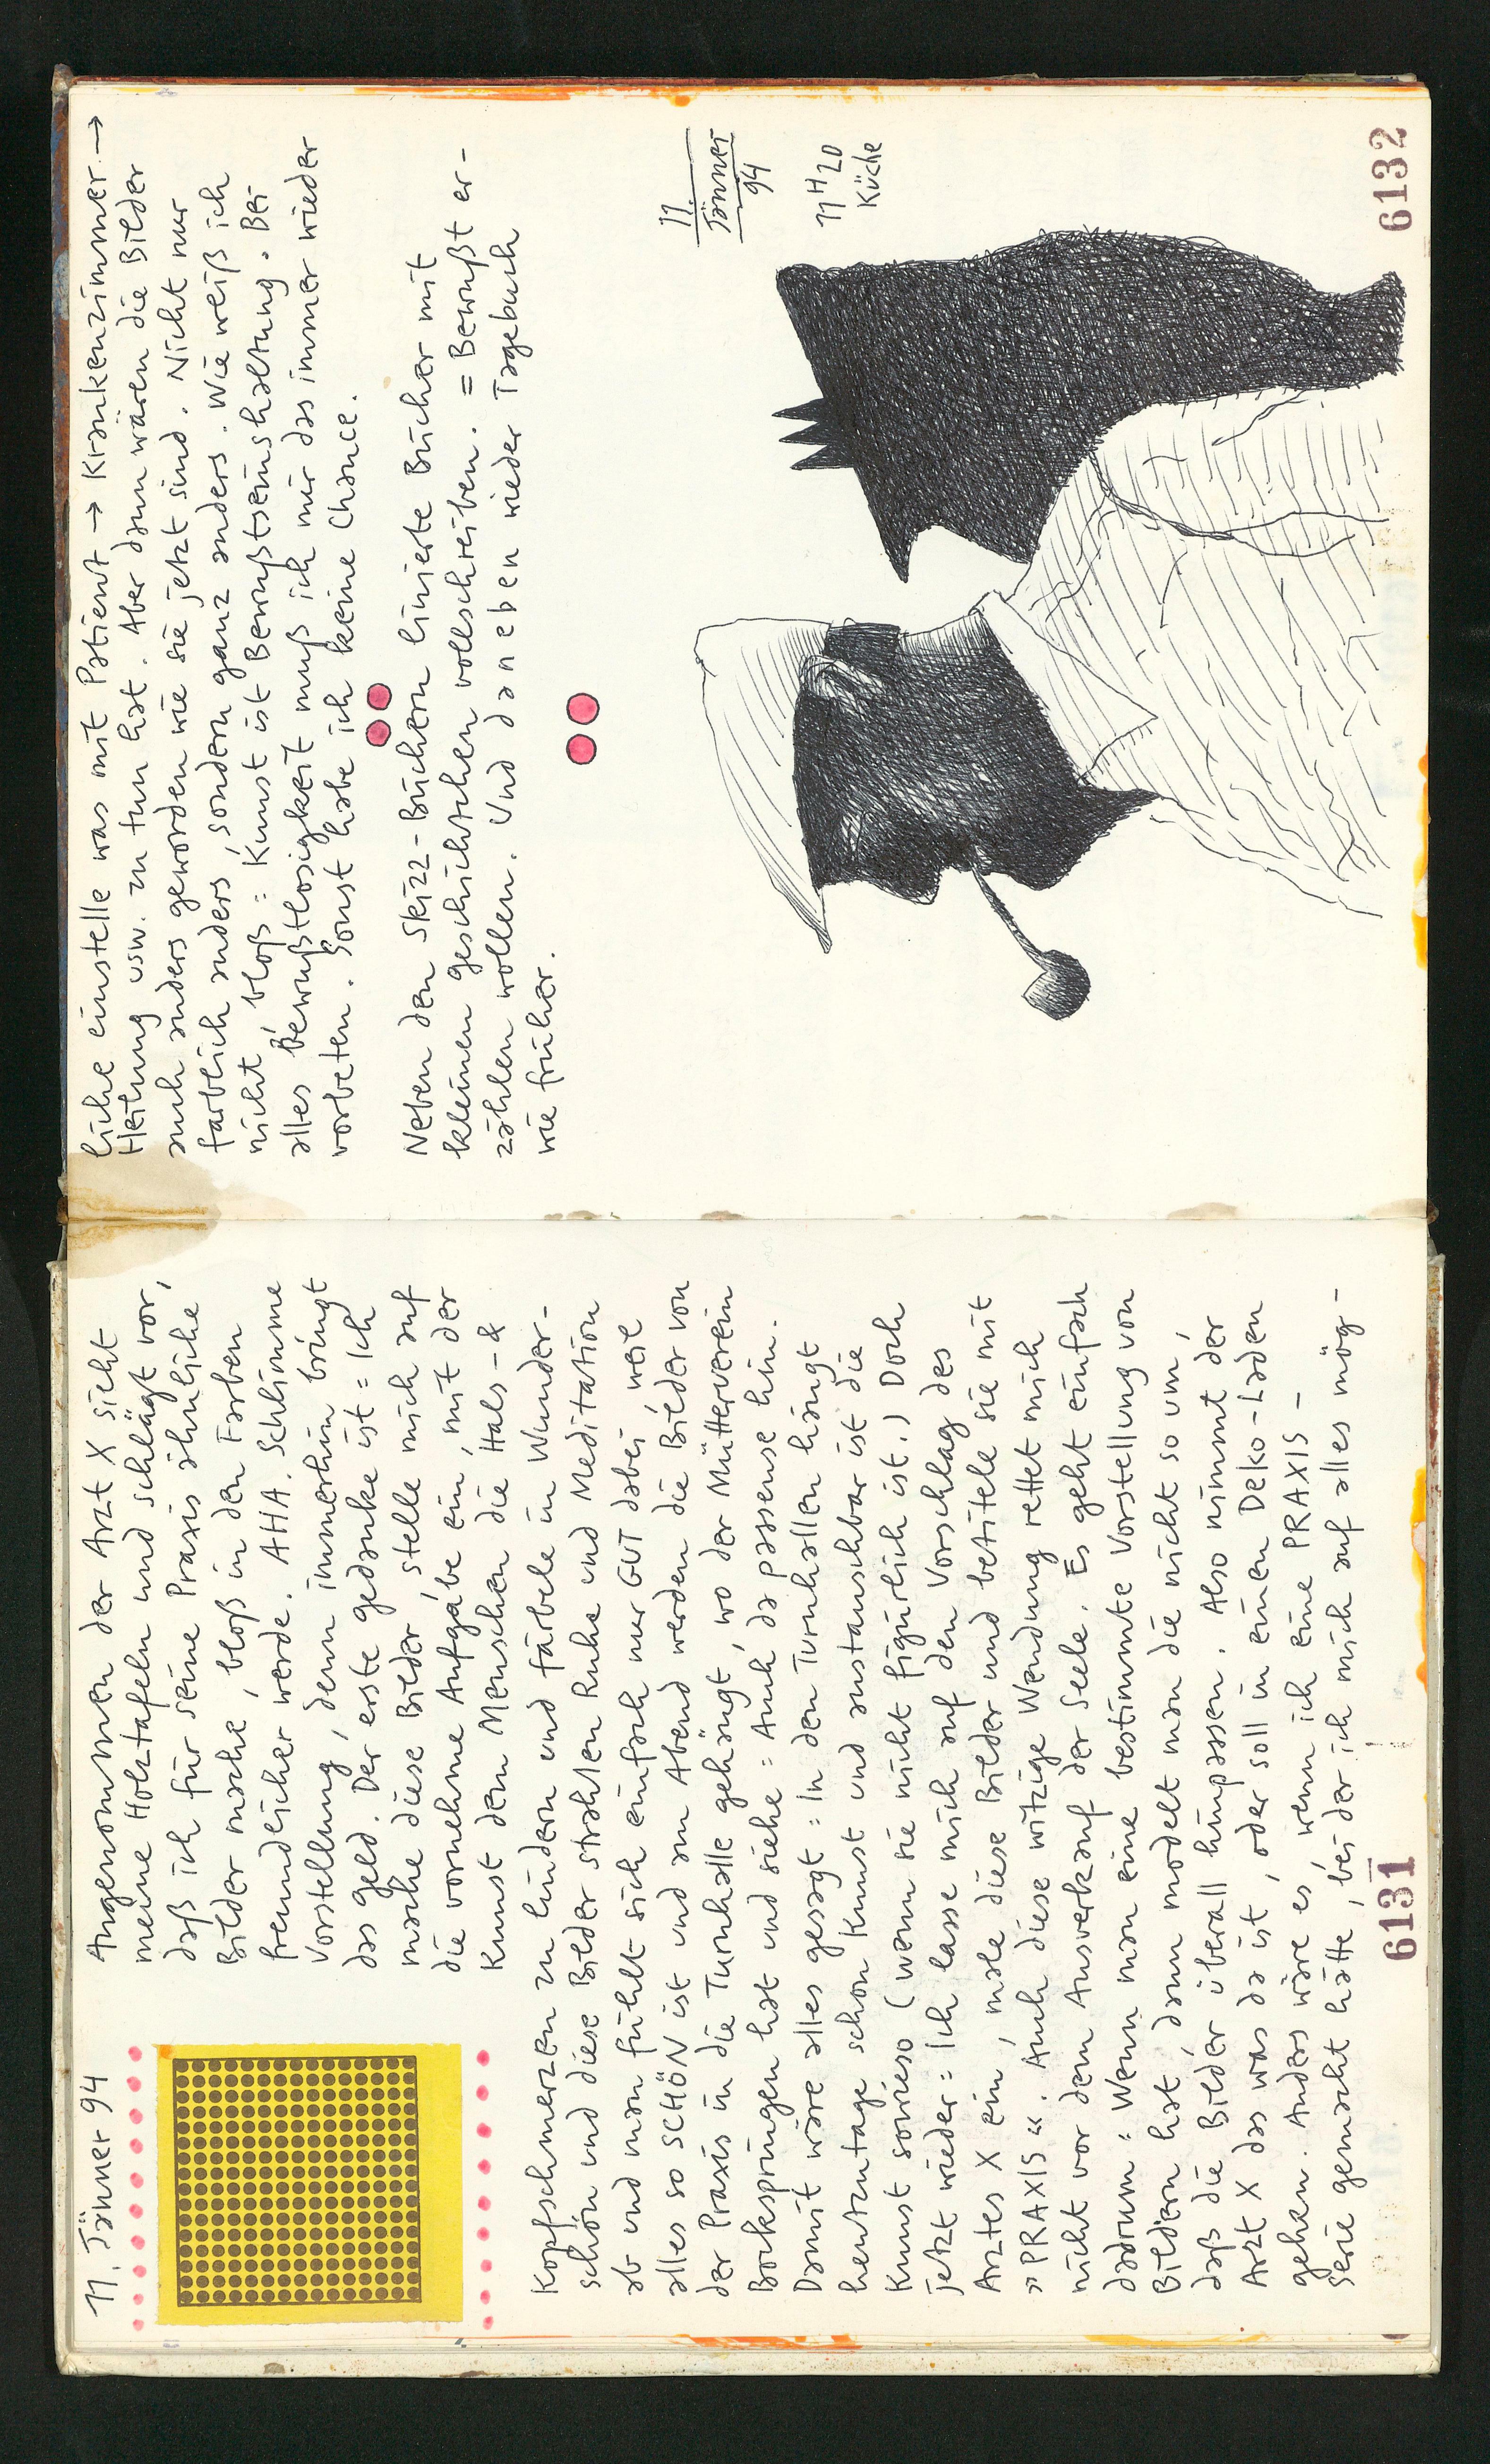 11. Jänner 94
Angenommen der Arzt X sieht
meine Holztafeln und schlägt vor,
daß ich für seine Praxis ähnliche
Bilder mache, bloß in den Farben
freundlicher werde. AHA. Schlimme
Vorstellung, denn immerhin bringt
das Geld. Der erste Gedanke ist = Ich
mache diese Bilder, stelle mich auf
die vornehme Aufgabe ein, mit der
Kunst dem Menschen die Hals- &
Kopfschmerzen zu lindern und färbele in Wunder-
schön und diese Bilder strahlen Ruhe und Meditation
ab und man fühlt sich einfach nur GUT dabei, weil
alles so SCHÖN ist und am Abend werden die Bilder von
der Praxis in die Turnhalle gehängt, wo der Mütterverein
Bocksprüngen hat und siehe = Auch da passense hin.
Damit wäre alles gesagt = In den Turnhallen hängt
heutzutage schon Kunst und austauschbar ist die
Kunst sowieso (wenn sie nicht figürlich ist.) Doch
jetzt wieder = Ich lasse mich auf den Vorschlag des
Arztes X ein, male diese Bilder und betitele sie mit
»PRAXIS«. Auch diese witzige Wendung rettet mich
nicht vor dem Ausverkauf der Seele. Es geht einfach
darum = Wenn man eine bestimmte Vorstellung von
Bildern hat, dann modelt man die nicht so um,
daß die Bilder überall hinpassen. Also nimmt der
Arzt X das was da ist, oder soll in einen Deko-Laden
gehen. Anders wäre es, wenn ich eine PRAXIS-
Serie gemacht hätte, bei der ich mich auf alles mög-
6131
liche einstelle was mit Patient → Krankenzimmer →
Heilung usw. zu tun hat. Aber dann wären die Bilder
auch anders geworden wie sie jetzt sind. Nicht nur
farblich anders, sondern ganz anders. Wie weiß ich
nicht, bloß = Kunst ist Bewußtseinshaltung. Bei
alles Bewußtlosigkeit muß ich mir das immer wieder
vorbeten. Sonst habe ich keine Chance.
Neben den Skizz-Büchern linierte Bücher mit
kleinen Geschichtchen vollschreiben. = Bewußt er-
zählen wollen. Und daneben wieder Tagebuch
wie früher.
11.
Jänner
94
11 H 20
Küche
6132